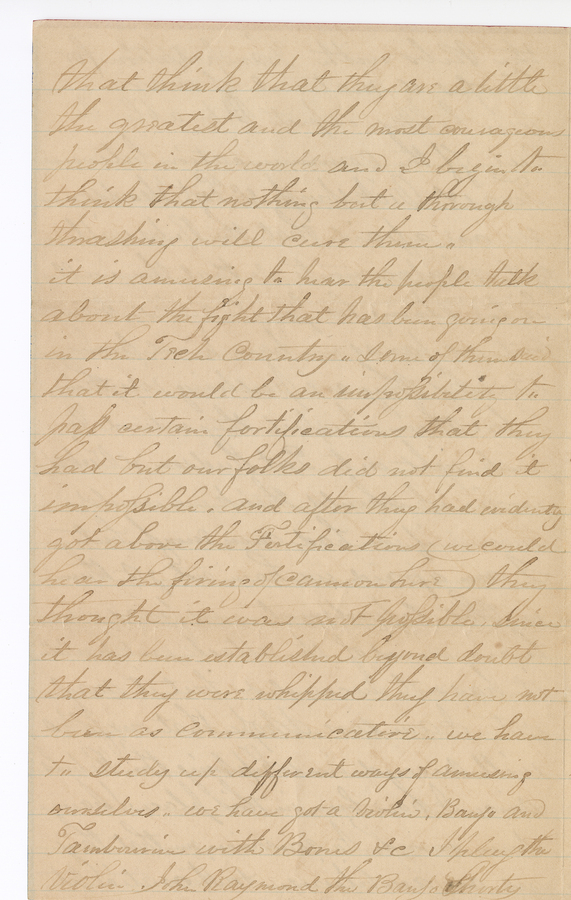 that think that they are a little
the greatest and the most courageous
people in the world and I begin to
think that nothing but a thorough
thrashing will cure them"
it is amusing to hear the people talk
about the fight that has been going on
in the Tech Country" Some of them said
that it would be an impossibility to
pass certain fortifications that they
had but our folks did not find it
impossible. and after they had evidently
got above the Fortifications (we could
hear the firing of cannon here) they
thought it was not possible. Since
it has been established beyond doubt
that they were whipped they have not
been as communicative" we have
to study up different ways of amusing
ourselves" we have got a violin, Banjo and
Tambourin with Bones &c I play the
Violin John Raymond the Banjo Shorty